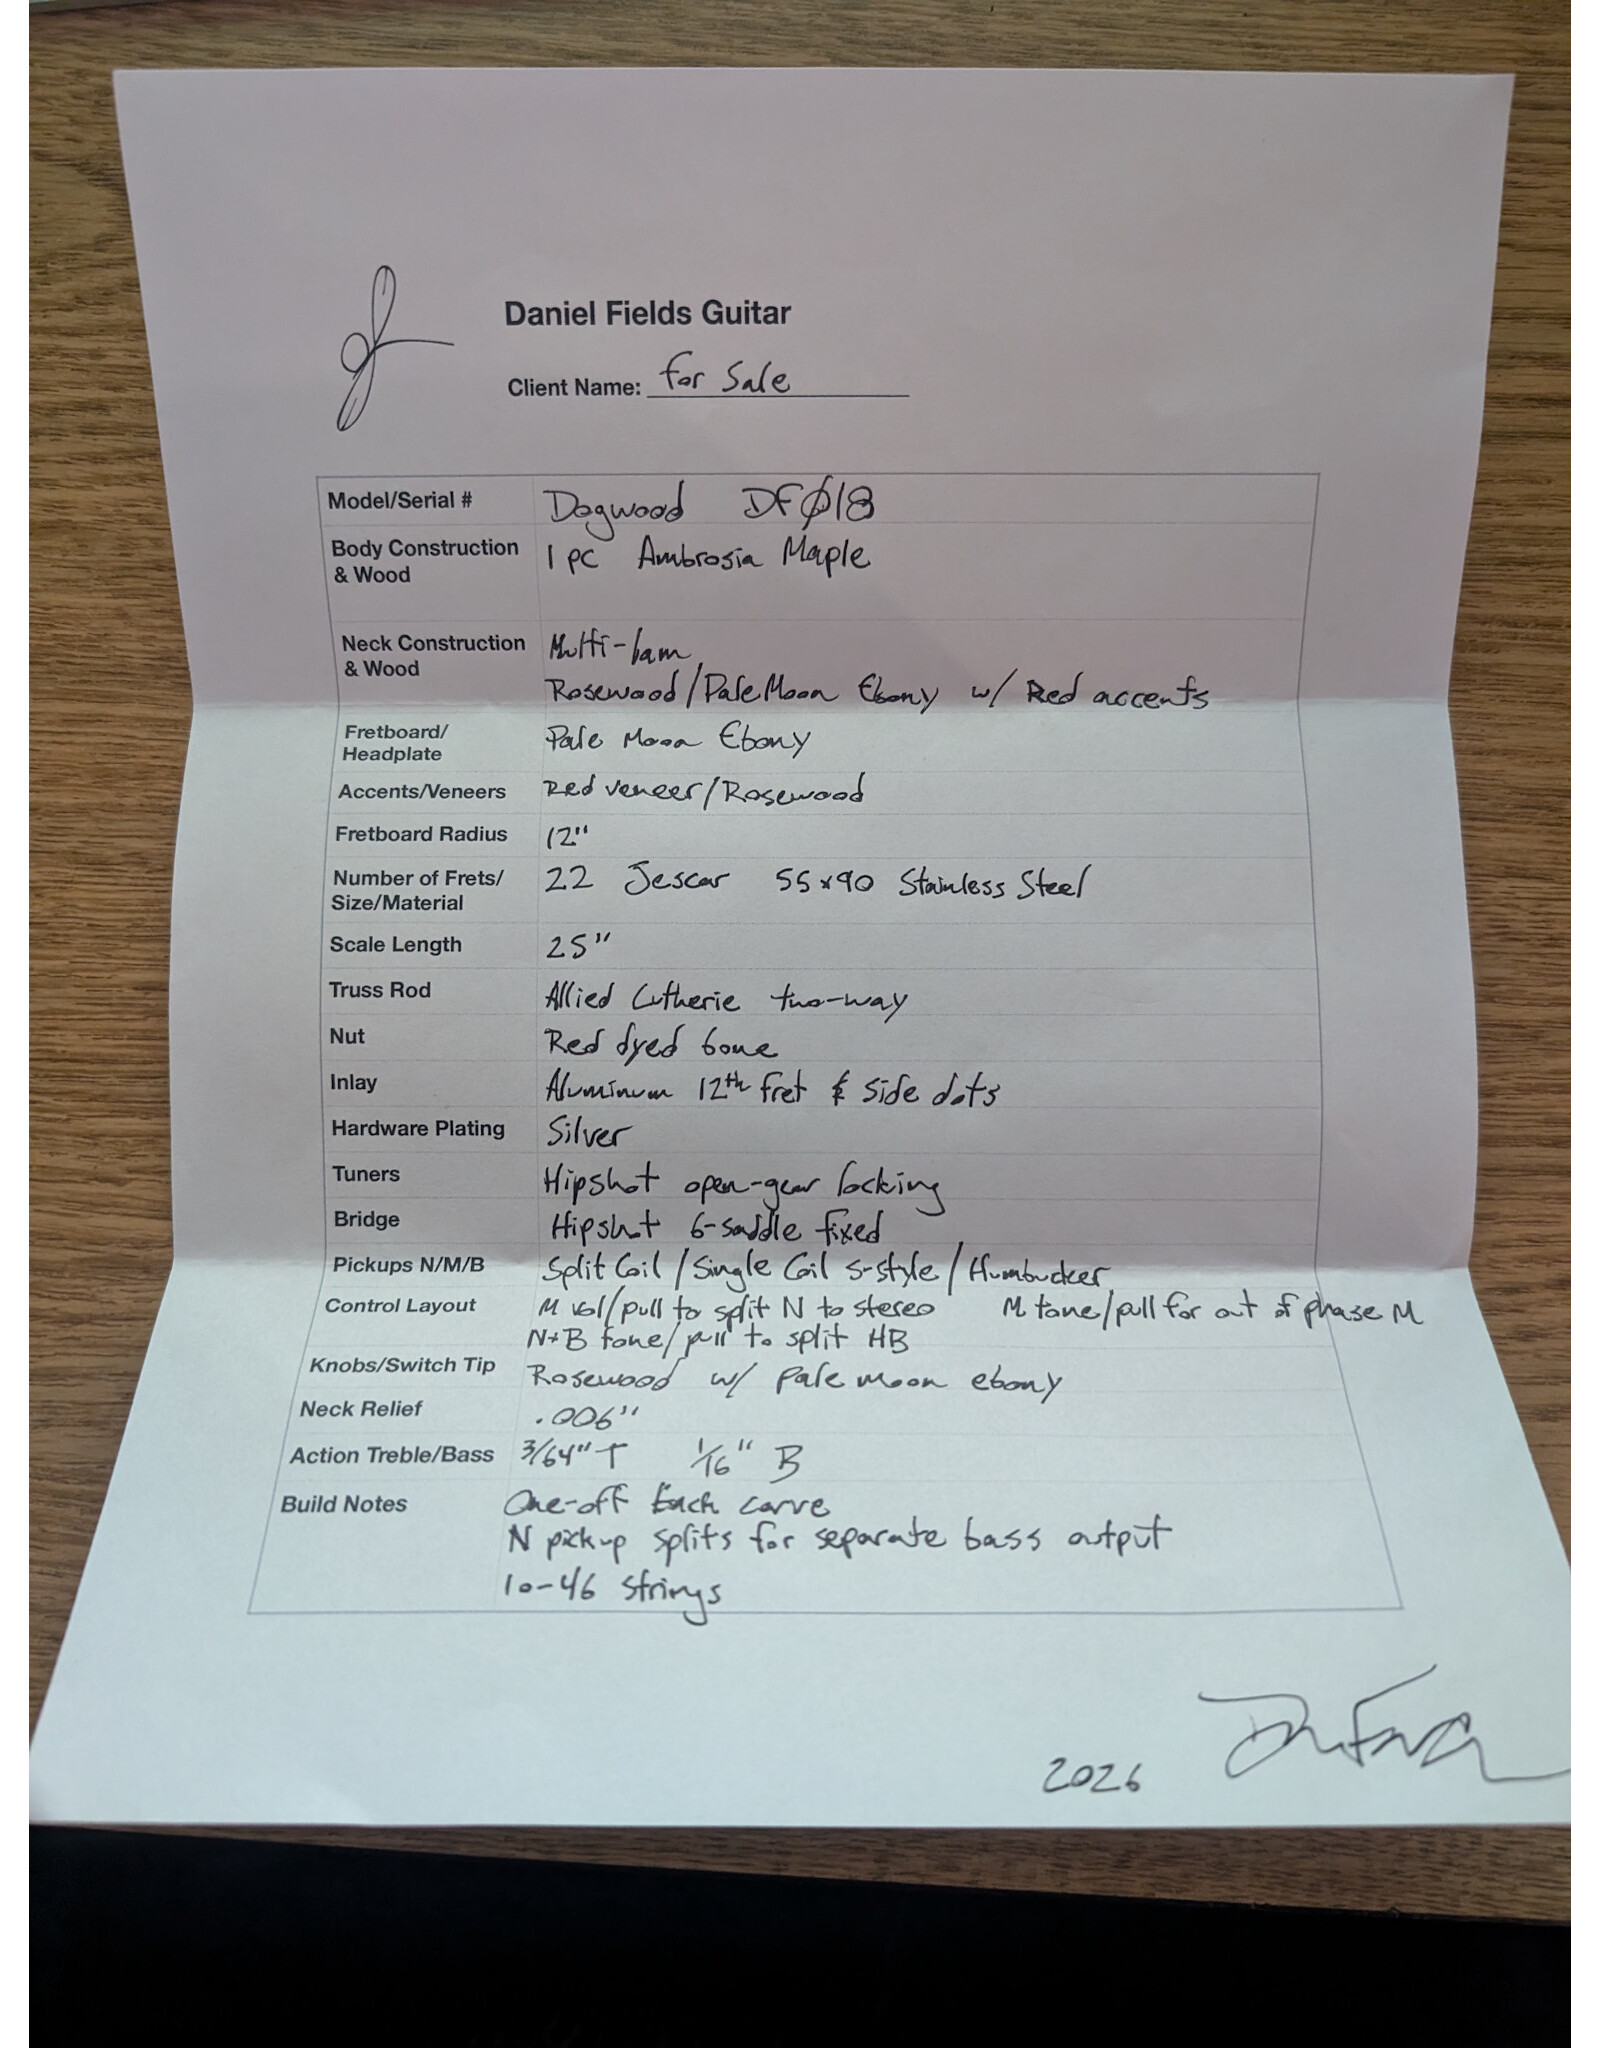 Daniel Fields Guitar
Client Name: for Sale
Model/Serial # Dogwood DFØ18
Body Construction & Wood 1 pc Ambrosia Maple
Neck Construction & Wood Multi-lam
Rosewood/Pale Moon Ebony w/ Red accents
Fretboard/Headplate Pale Moon Ebony
Accents/Veneers Red veneer/Rosewood
Fretboard Radius 12"
Number of Frets/Size/Material 22 Jescar 55x90 Stainless Steel
Scale Length 25"
Truss Rod Allied Lutherie two-way
Nut Red dyed bone
Inlay Aluminum 12th fret & side dots
Hardware Plating Silver
Tuners Hipshot open-gear locking
Bridge Hipshot 6-saddle fixed
Pickups N/M/B Split Coil/Single Coil S-style/Humbucker
Control Layout M vol/pull to split N to stereo M tone/pull for out of phase M
N+B tone/pull to split HB
Knobs/Switch Tip Rosewood w/ pale moon ebony
Neck Relief .006"
Action Treble/Bass 3/64" T 1/16" B
Build Notes One-off back carve
N pickup splits for separate bass output
10-46 strings
2026